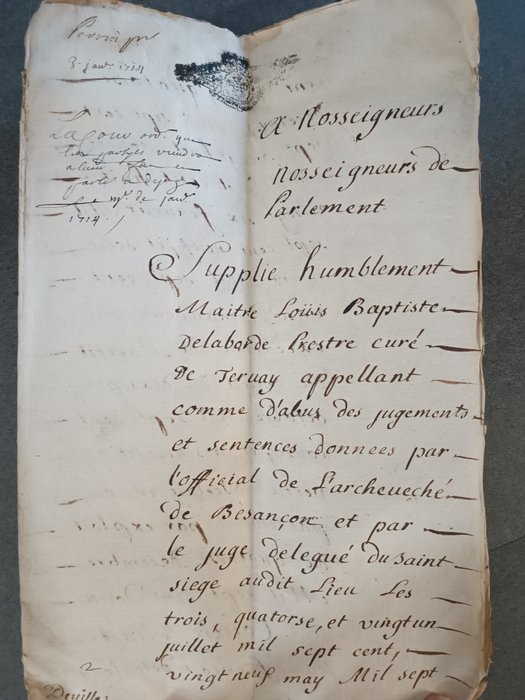 3 janv 1714
La Cour ord que
les parties viendro
1714.
A Nosseigneurs
nosseigneurs de
Parlement
Supplie humblement
Maitre Loüis Baptiste
Delaborde Prestre curé
De Tervay appellant
comme d'abus des jugements
et sentences donnees par
l'official de L'archeveché
de Besançon et par
le juge delegué du saint
siege audit Lieu Les
trois, quatorse, et vingt un
juillet mil sept cent,
vingt neuf may Mil sept
2